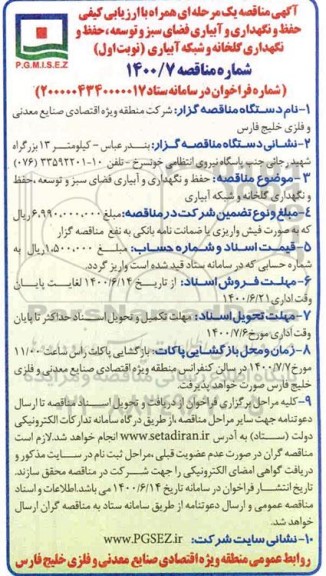 آگهی مناقصه یک مرحله ای همراه با ارزیابی کیفی
حفظ و نگهداری و آبیاری فضای سبز و توسعه، حفظ و
نگهداری گلخانه و شبکه آبیاری (نوبت اول)
P.G.M.I.S.E.Z
شماره مناقصه ۱۴۰۰/۷
(شماره فراخوان در سامانه ستاد ۲۰۰۰۰۰۴۳۴۰۰۰۰۰۱۷)
۱-نام دستگاه مناقصه گزار: شرکت منطقه ویژه اقتصادی صنایع معدنی
و فلزی خلیج فارس
۲-نشانی دستگاه مناقصه گزار: بندرعباس - کیلومتر ۱۳ بزرگراه
شهید رجائی جنب پاسگاه نیروی انتظامی خونسرخ - تلفن ۱۰-۳۳۵۹۲۲۰۱ (۰۷۶)
۳-موضوع مناقصه: حفظ و نگهداری و آبیاری فضای سبز و توسعه ،حفظ و
نگهداری گلخانه و شبکه آبیاری
۴-مبلغ و نوع تضمین شرکت در مناقصه: مبلغ ۶,۹۹۰,۰۰۰,۰۰۰ ریال
که به صورت فیش واریزی یا ضمانت نامه بانکی به نفع مناقصه گزار
۵-قیمت اسناد و شماره حساب: مبلغ ۱,۵۰۰,۰۰۰ ریال به
شماره حسابی که در سامانه ستاد قید شده است واریز گردد.
۶-مهلت فروش اسناد: از تاریخ ۱۴۰۰/۶/۱۴ لغایت پایان
وقت اداری ۱۴۰۰/۶/۲۱
۷-مهلت تحویل اسناد: مهلت تکمیل و تحویل اسناد حداکثر تا پایان
وقت اداری مورخ ۱۴۰۰/۷/۶
۸-زمان و محل بازگشایی پاکات: بازگشایی پاکات راس ساعت ۱۱/۰۰
مورخ ۱۴۰۰/۷/۷ در سالن کنفرانس منطقه ویژه اقتصادی صنایع معدنی و فلزی
خلیج فارس صورت خواهد پذیرفت.
۹-کلیه مراحل برگزاری فراخوان از دریافت و تحویل اسناد مناقصه تا ارسال
دعوتنامه جهت سایر مراحل مناقصه ،از طریق درگاه سامانه تدارکات الکترونیکی
دولت (ستاد) به آدرس www.setadiran.ir انجام خواهد شد.لازم است
مناقصه گران در صورت عدم عضویت قبلی ،مراحل ثبت نام در سایت مذکور و
دریافت گواهی امضای الکترونیکی را جهت شرکت در مناقصه محقق سازند.
تاریخ انتشار فراخوان در سامانه تاریخ ۱۴۰۰/۶/۱۴ می باشد.اطلاعات و اسناد
مناقصه عمومی و ارسال دعوتنامه از طریق سامانه ستاد به مناقصه گران ارسال
خواهد شد.
۱۰-نشانی سایت شرکت: www.PGSEZ.ir
روابط عمومی منطقه ویژه اقتصادی صنایع معدنی و فلزی خلیج فارس